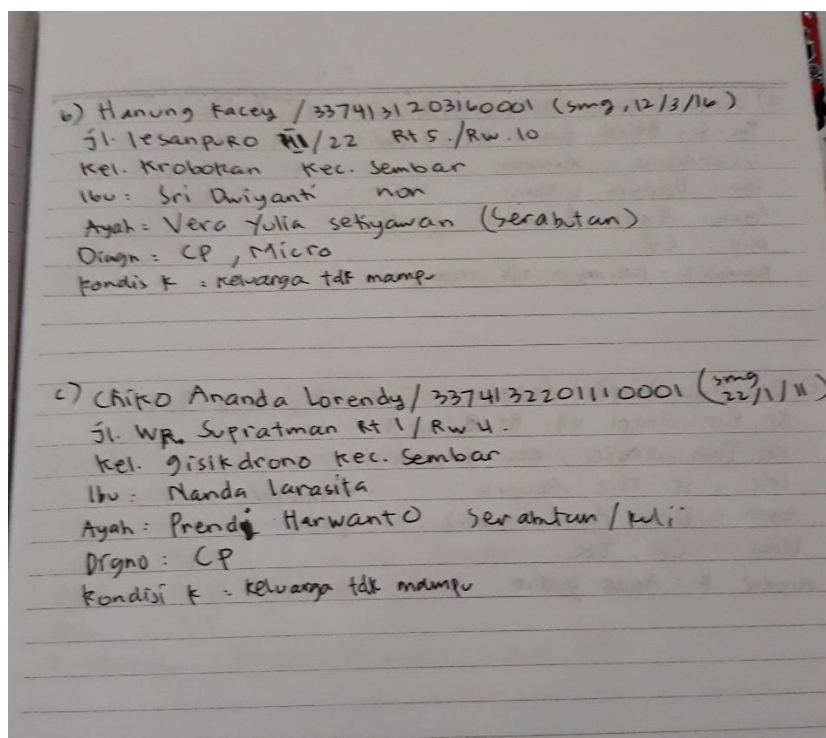 b) Hanung Kacey / 3374131203160001 (smg, 12/3/16)
Jl. lesanpuro /22 Rt 5./Rw.10
Kel. Krobokan Kec. Sembar
Ibu : Sri Dwiyanti non
Ayah = Vera Yulia setiyawan (Serabutan)
Diagn : CP, Micro
Kondis k : keluarga tdk mampu
c) Chiko Ananda Lorendy / 3374132201110001 (smg 22/1/11)
Jl. WR. Supratman Rt 1/Rw 4.
Kel. gisikdrono Kec. Sembar
Ibu : Nanda larasita
Ayah : Prendi Harwanto serabutan / kuli
Drgno : CP
Kondisi k : keluarga tdk mampu